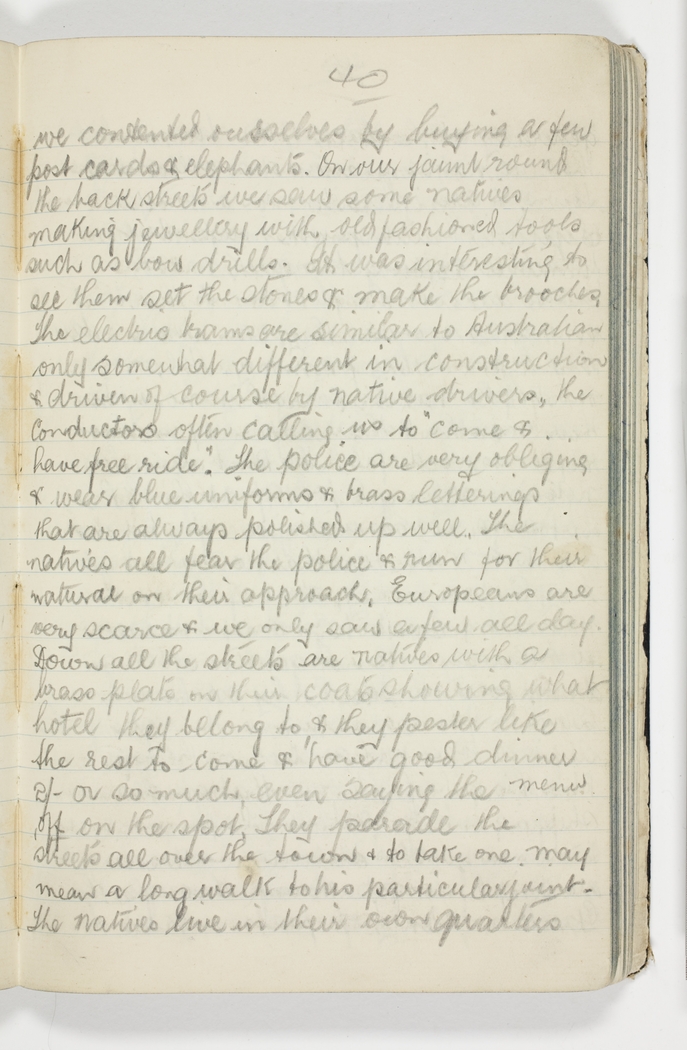 40
we contented ourselves by buying a few
post cards & elephants. On our jaunt round
the back streets we saw some natives
making jewellery with old fashioned tools
such as bow drills. It was interesting to
see them set the stones & make the brooches.
The electric trams are similar to Australian
only somewhat different in construction
& driven of course by native drivers, the
conductors often calling us to "come &
have free ride". The police are very obliging
& wear blue uniforms & brass letterings
that are always polished up well. The
natives all fear the police & run for their
natural on their approach. Europeans are
very scarce & we only saw a few all day.
Down all the streets are natives with a
brass plate on their coats showing what
hotel they belong to, & they pester like
the rest to come & "have good dinner
2/- or so much, even saying the menu
off on the spot. They parade the
streets all over the town & to take one may
mean a long walk to his particular joint.
The natives live in their own quarters